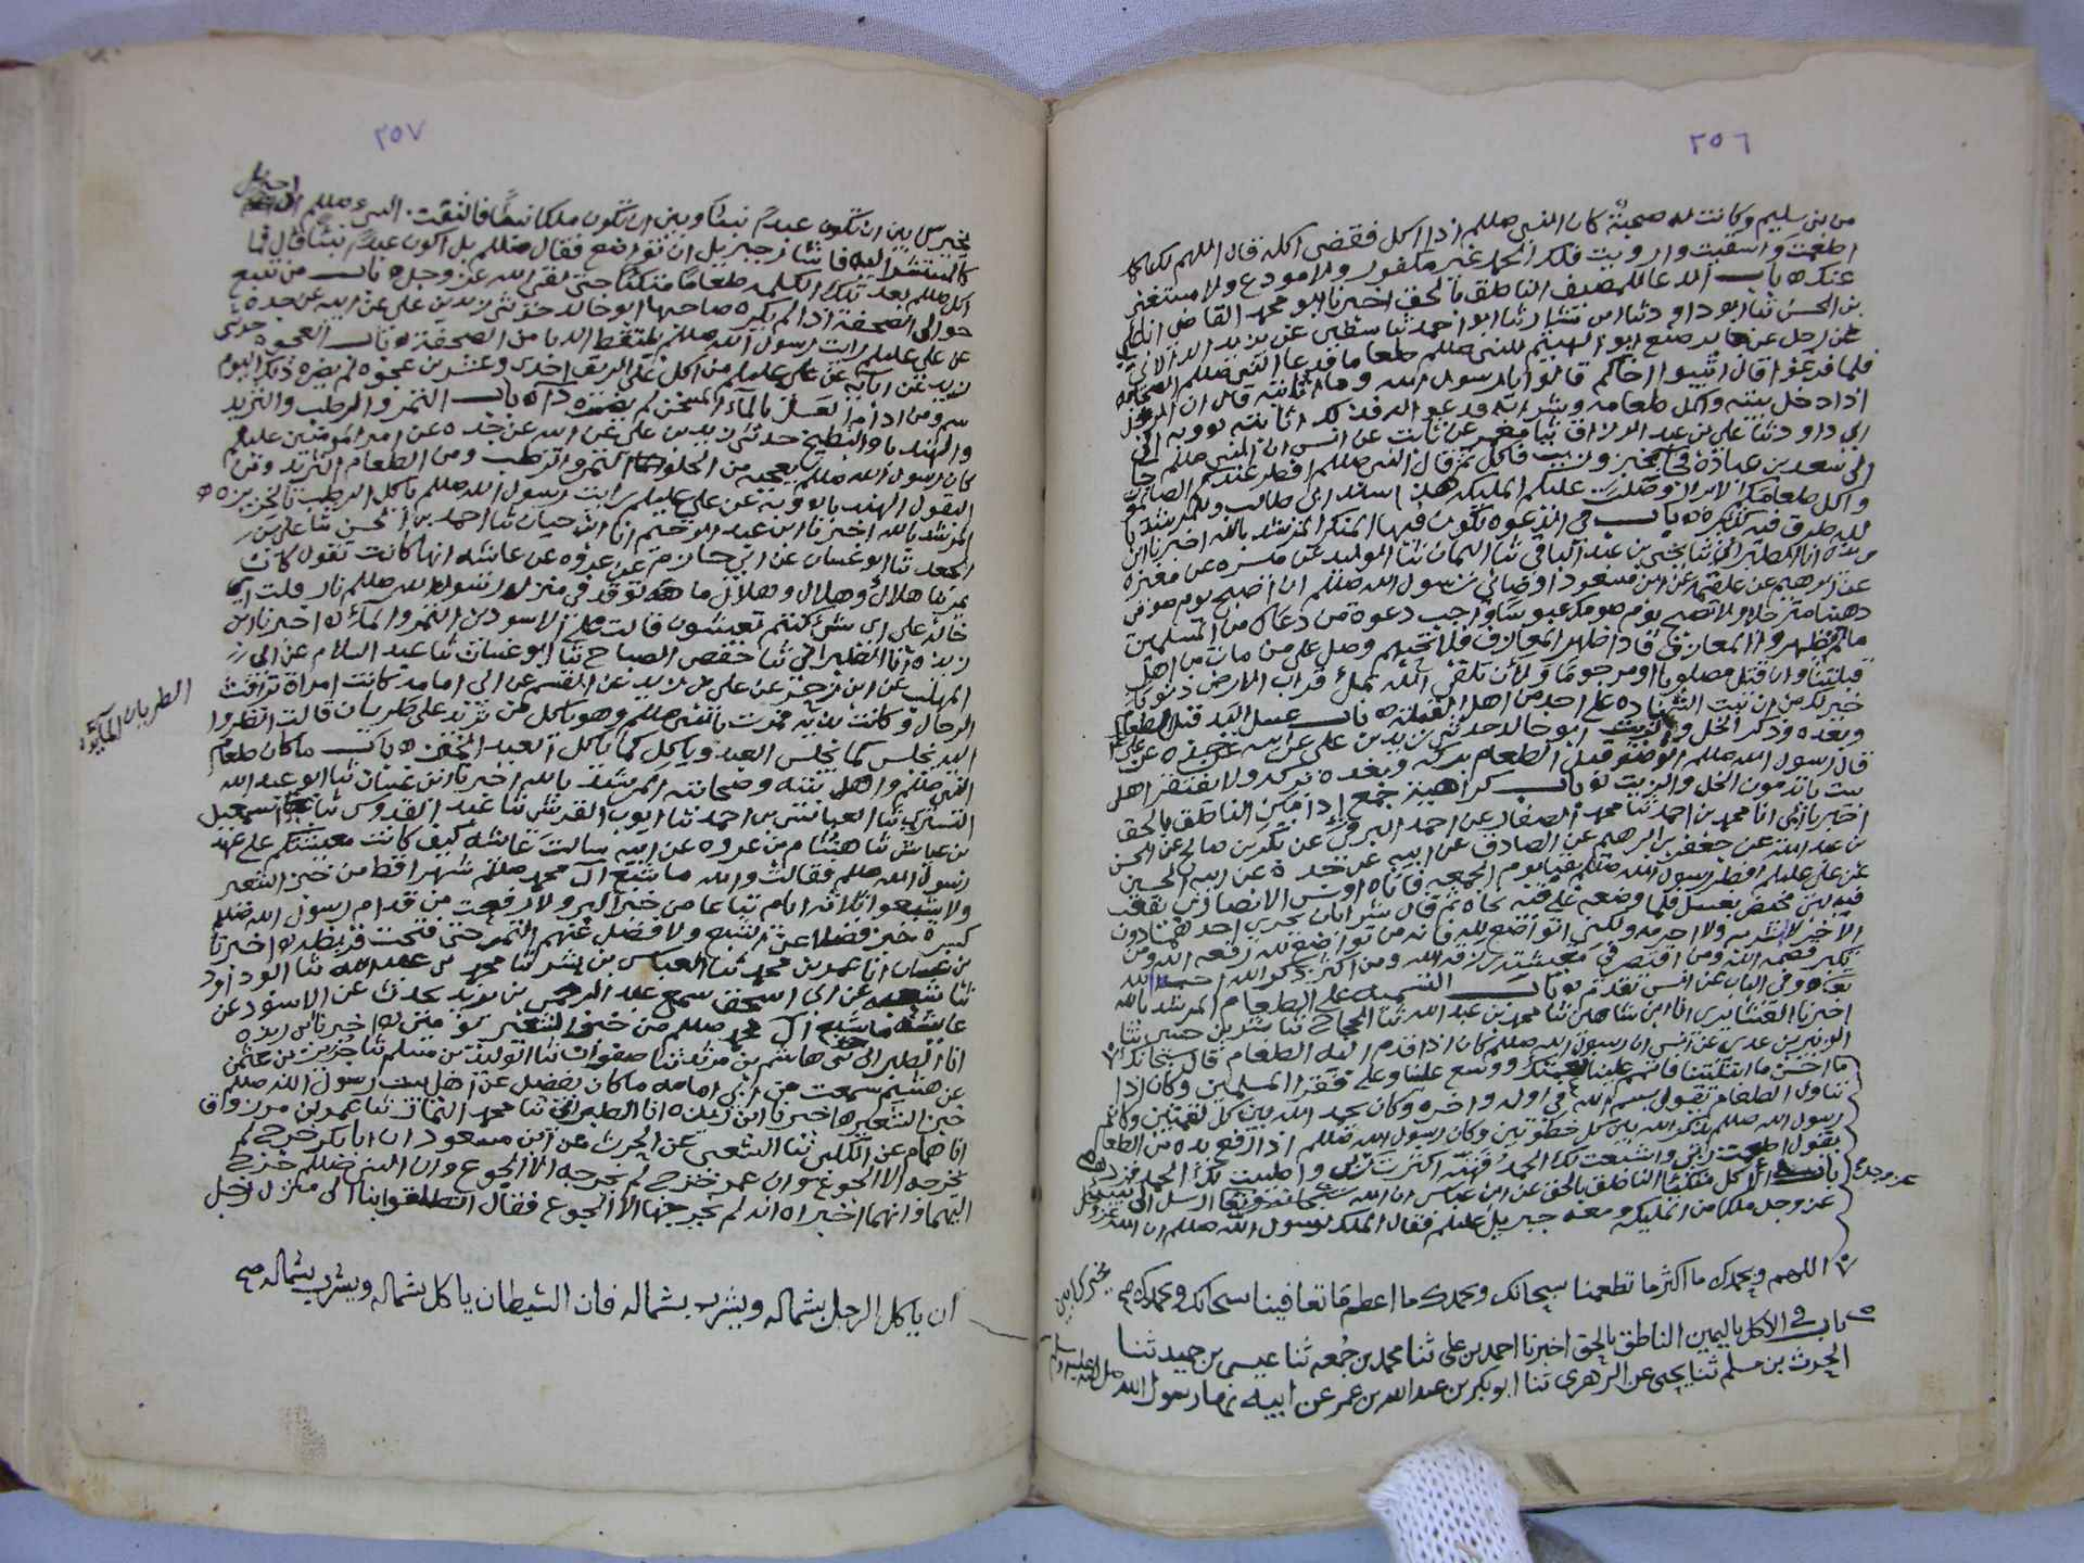 ٢٥٦
من بني سليم وكانت له صحبة كان النبي صللم اذا اكل فقضى اكله قال اللهم لك
اطعمت واسقيت وارويت فلك الحمد غير مكفور ولا مودع ولا مستغنى
عنك ه باب الدعا للمضيف الناطق بالحق اخبرنا ابو محمد القاضي انا علي
بن الحسن ثنا ابو داود ثنا ابن بشار ثنا ابو احمد ثنا سفين عن يزيد
عن رجل عن جابر صنع ابو الهيثم للنبي صللم طعاما فدعا النبي صللم اصحابه
فلما فرغوا قال اثيبوا اخاكم قالوا يا رسول الله وما اثابته قال ان الرجل
اذا دخل بيته واكل طعامه وشرابه فدعو الله فذلك اثابته وبه الى
ابي داود ثنا علي بن عبد الرزاق ثنا معمر عن ثابت عن انس ان النبي صللم جا
الى سعد بن عبادة فجا بخبز وزيت فاكل ثم قال النبي صللم افطر عندكم الصائمون
واكل طعامكم الابرار وصلت عليكم المليكه
باب في الدعوه تكون فيها المنكر المرشد بالله اخبرنا ابن
ريذه انا الطبراني ثنا يحيى بن عبد الباقي ثنا اليمان ثنا الوليد عن مسره عن مغيرة
عن ابرهيم عن علقمة عن ابن مسعود اوصاني رسول الله صللم ان اصبح يوم صومي
دهينا مترجلا ولا تصبح يوم صومك عبوسا واجب دعوة من دعاك من المسلمين
ما لم يظهروا المعازف فاذا ظهر المعازف فلا تجبهم وصل على من مات من اهل
قبلتنا وان قتل مصلوبا او مرجوما ولأن تلقى الله بمثل قراب الارض ذنوبا
خير لك من ان تبت الشهادة على احد من اهل القبلة ه باب غسل اليد قبل الطعام
وبعده وذكر الخل والزيت ابو خالد حدثني زيد بن علي عن ابيه عن جده عن علي
قال رسول الله صللم الوضو قبل الطعام بركه وبعده بركه ولا يفتقر اهل
بيت يأتدمون الخل والزيت ه باب كراهية جمع إدامين الناطق بالحق
اخبرنا ابي انا محمد بن احمد ثنا محمد الصفار عن احمد البرقي عن بكر بن صالح عن الحسن
بن عبد الله عن جعفر بن ابرهيم عن الصادق عن ابيه عن جده عن ابيه الحسين
عن علي عليلم افطر رسول الله صللم بقبا يوم الجمعه فاتاه اوس الانصاري بقعب
فيه لبن مخيض بعسل فلما وضعه على فيه نحاه ثم قال شرابان يجزي احدهما دون
الاخر لا اشربه ولا احرمه ولكني اتواضع لله فانه من تواضع لله رفعه الله ومن
تكبر قصمه الله ومن اقتصد في معيشته رزقه الله ومن اكثر ذكر الله احبه الله
تعا وفي الباب عن انس تقدم ه باب التسميه على الطعام المرشد بالله
اخبرنا العشاري انا ابن شاهين ثنا محمد بن عبد الله ثنا الحجاج ثنا بشر بن حسين ثنا
الزبير بن عدي عن انس ان رسول الله صللم كان اذا قدم اليه الطعام قال سبحانك
ما احسن ما ابتليتنا فاتمم علينا نعمتك ووسع علينا وعلى فقرا المسلمين وكان اذا
تناول الطعام يقول بسم الله في اوله واخره وكان يحمد الله بين كل لقمتين وكان
رسول الله صللم يذكر الله بين كل خطوتين وكان رسول الله صللم اذا رفع يده من الطعام
يقول اطعمت ربي واشبعت لك الحمد فهنه اكثرت ربي واطيبت لك الحمد فزد
باب الاكل متكئا الناطق بالحق عن ابن عباس ان الله سبحانه وتعا ارسل الى نبيه
عز وجل ملكا من المليكه ومعه جبريل عليلم فقال الملك لرسول الله صللم ان الله عز وجل
عز وجل
يخيرك بين
اللهم وبحمدك ما اكثر ما تطعمنا سبحانك وبحمدك ما اعظم ما تعافينا سبحانك وبحمدك صح
باب في الاكل باليمين الناطق بالحق اخبرنا احمد بن علي ثنا محمد بن جُمعه ثنا عيسى بن حميد ثنا
الحرث بن مسلم ثنا يحيى عن الزهري ثنا ابو بكر بن عبد الله بن عمر عن ابيه نها رسول الله صلى الله عليه وسلم
٢٥٧
يخيرك بين ان تكون عبدًا نبيًا وبين ان تكون ملكا نبيًا فالتفت النبي صللم الى جبريل
كالمستشير اليه فاشار جبريل ان تواضع فقال صللم بل اكون عبدًا نبيًا قال فما
اكل صللم بعد تلك الكلمه طعامًا متكئًا حتى لقي الله عز وجل ه باب من تتبع
حوالي الصحفة اذا لم يكره صاحبها ابو خالد حدثني زيد بن علي عن ابيه عن جده
عن علي عليلم رايت رسول الله صللم يلتقط الدبا من الصحفة ه باب العجوه حدثني
زيد عن ابايه عن علي عليلم من اكل على الريق احدى وعشرين عجوه لم يضره ذلك اليوم
سم ومن ادام العسل بالماء المسخن لم يضره داء باب التمر والرطب والثريد
والهندبا والبطيخ حدثني زيد بن علي عن ابيه عن جده عن امير المومنين عليلم
كان رسول الله صللم يعجبه من الحلوا التمر والرطب ومن الطعام الثريد ومن
البقول الهندبا وبه عن علي عليلم رايت رسول الله صللم ياكل الرطب بالخربز ه
المرشد بالله اخبرنا ابن عبد الرحيم انا ابن حيان ثنا احمد بن الحسن ثنا علي بن
الجعد ثنا ابو غسان عن ابي حازم عن عروه عن عائشه انها كانت تقول كانت
تمر بنا هلال وهلال وهلال ما توقد في منزل رسول الله صللم نار قلت اي
خاله على اي شئ كنتم تعيشون قالت على الاسودين التمر والماء ه اخبرنا ابن
ريذه انا الطبراني ثنا حفص الصباح ثنا ابو غسان ثنا عبد السلام عن ابي
المهلب عن ابن زحر عن علي بن يزيد عن القسم عن ابي امامه كانت امراة ترافث
الرجال وكانت بذيه فمرت بالنبي صللم وهو ياكل من ثريد على طربان قالت انظروا
اليه يجلس كما يجلس العبد وياكل كما ياكل العبد ه باب ما كان طعام
النبي صللم واهل بيته وصحابته المرشد بالله اخبرنا ابن غسان ثنا ابو عبد الله
التستري ثنا العباس بن احمد ثنا ايوب القرشي ثنا عبد القدوس ثنا اسمعيل
بن عياش ثنا هشام بن عروه عن ابيه سالت عائشه كيف كانت معيشتكم على عهد
رسول الله صللم فقالت والله ما شبع آل محمد صللم شهرا قط من خبز الشعير
ولا شبعوا ثلاثه ايام تباعا من خبز البر ولا رفعت من قدام رسول الله صللم
كسرة خبز فضلا عن الشبع ولا فضل عنهم التمر حتى فتحت قريظه ه اخبرنا
بن غسان انا عمر بن محمد ثنا العباس بن بشر ثنا محمد بن عبد الله ثنا ابو داود
ثنا شعبه عن ابي اسحق سمع عبد الرحمن بن يزيد يحدث عن الاسود عن
عايشة ما شبع آل محمد صللم من خبز الشعير اخبرنا ابن ريذه
انا الطبراني ثني هاشم بن مرثد ثنا صفوان ثنا الوليد بن مسلم ثنا حريز بن عثمن
عن سمعت من ابي امامه ما كان يفضل عن اهل بيت رسول الله صللم
خبز الشعير ه اخبرنا ابن ريذه انا الطبراني ثنا محمد التمار ثنا عمرو بن مرزواق
انا همام عن الكلبي ثنا الشعبي عن الحرث عن ابن مسعود ان ابا بكر خرج لم
يخرجه الا الجوع وان عمر خرج لم يخرجه الا الجوع وان النبي صللم خرج
اليهما وانهما اخبراه انه لم يخرجهما الا الجوع فقال انطلقوا بنا الى منزل رجل
الطربان المائده
ان ياكل الرجل بشماله ويشرب بشماله فان الشيطان ياكل بشماله ويشرب بشماله صح